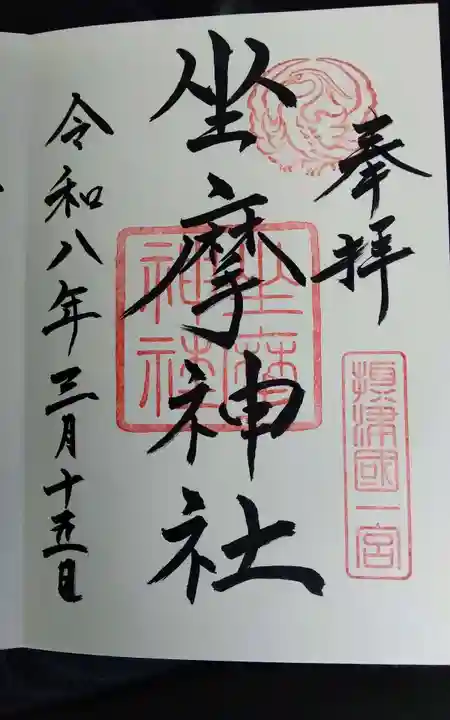 奉拝
摂津國一宮
坐摩神社
坐摩神社
令和八年三月十五日